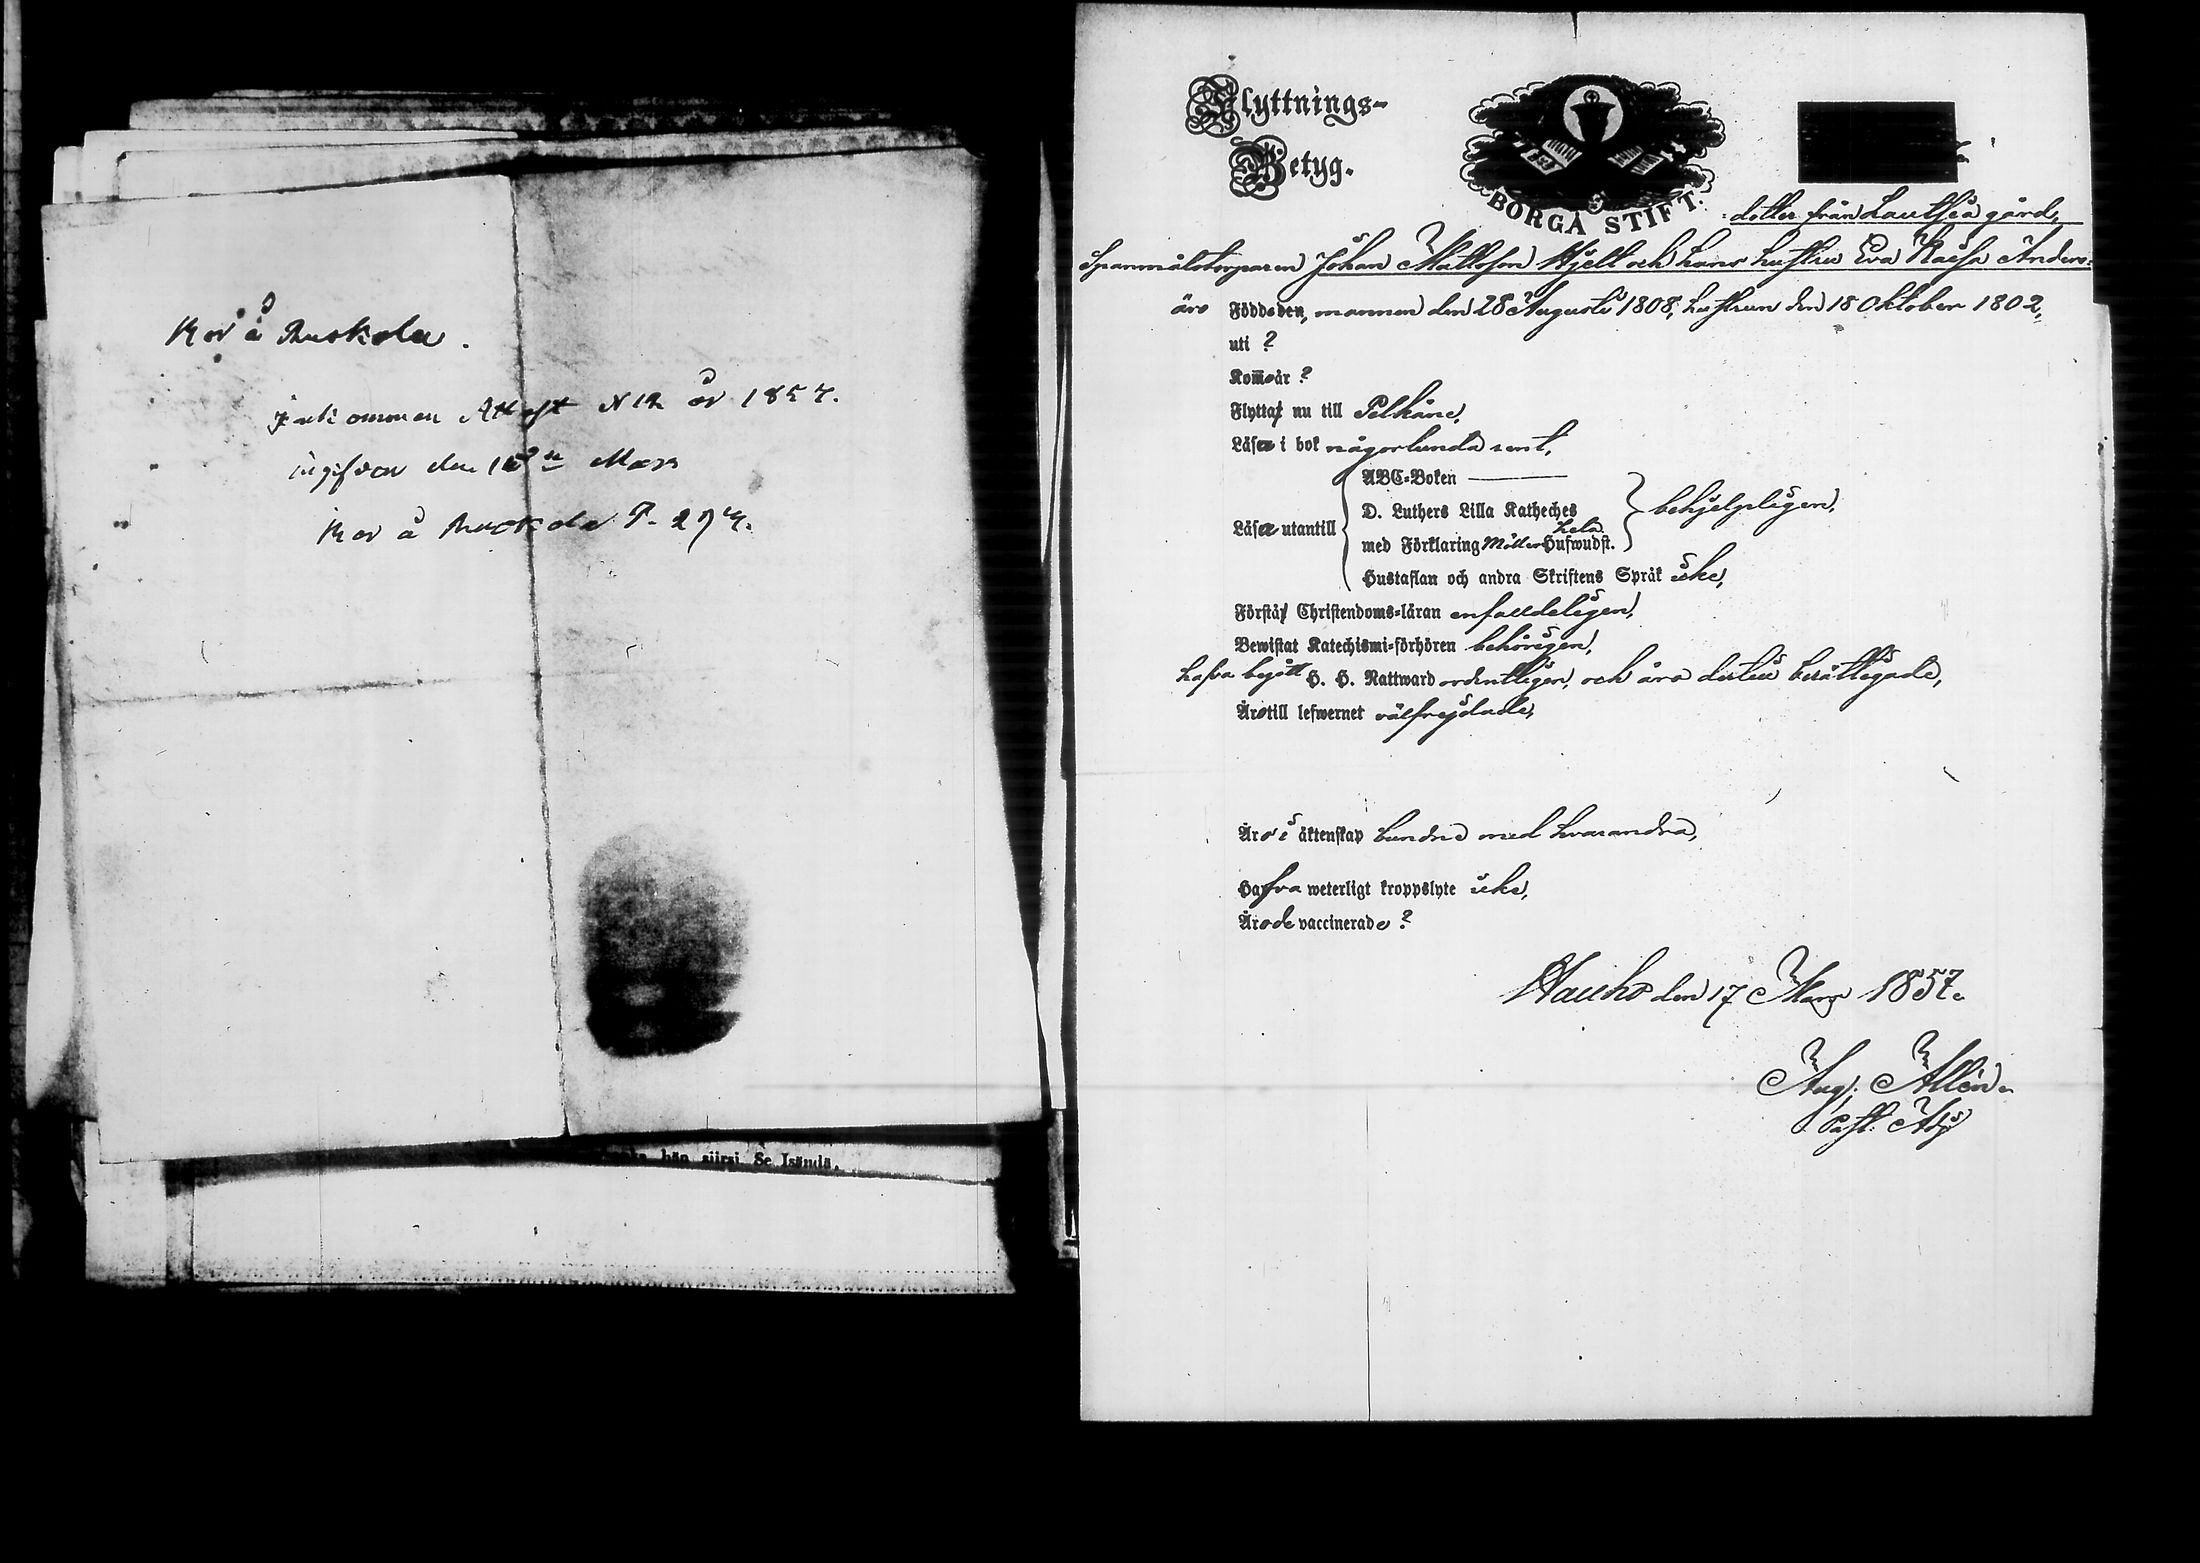 Bor å Ruskola.
Inkommen Attest N 12 år 1857.
ingifven den Mars
Bor å Ruskola P. 274.
hän siirsi Se Isändä.
Flyttnings-
Betyg.
BORGÅ STIFT.
dotter från Lautsia gård,
Spanmålstorparen Johan Mattsson Hjelt och hans hustru Eva Kaisa Anders-
äro Födde den, mannen den 28 Augusti 1808, hustrun den 18 Oktober 1802,
uti ?
Kom̄o år ?
Flytta nu till Pelkäne,
Läsa i bok någorlunda rent,
ABC-Boken ———
D. Luthers Lilla Katheches
hela
med Förklaring Möllers Hufwudst.
behjelpligen,
Läsa utantill
Hustaflan och andra Skriftens Språk icke,
Förstå Christendoms-läran enfaldeligen,
Bewistat Katechismi-förhören behörigen,
hafva begått H. H. Nattward ordentligen, och äro dertill berättigade,
Äro till lefwernet välfrejdade,
Äro i äktenskap bundne med hvarandra,
Hafva weterligt kroppslyte icke,
Äro de vaccinerade ?
Hauho den 17 Mars 1857.
Aug. Allén.
Past. Adj.